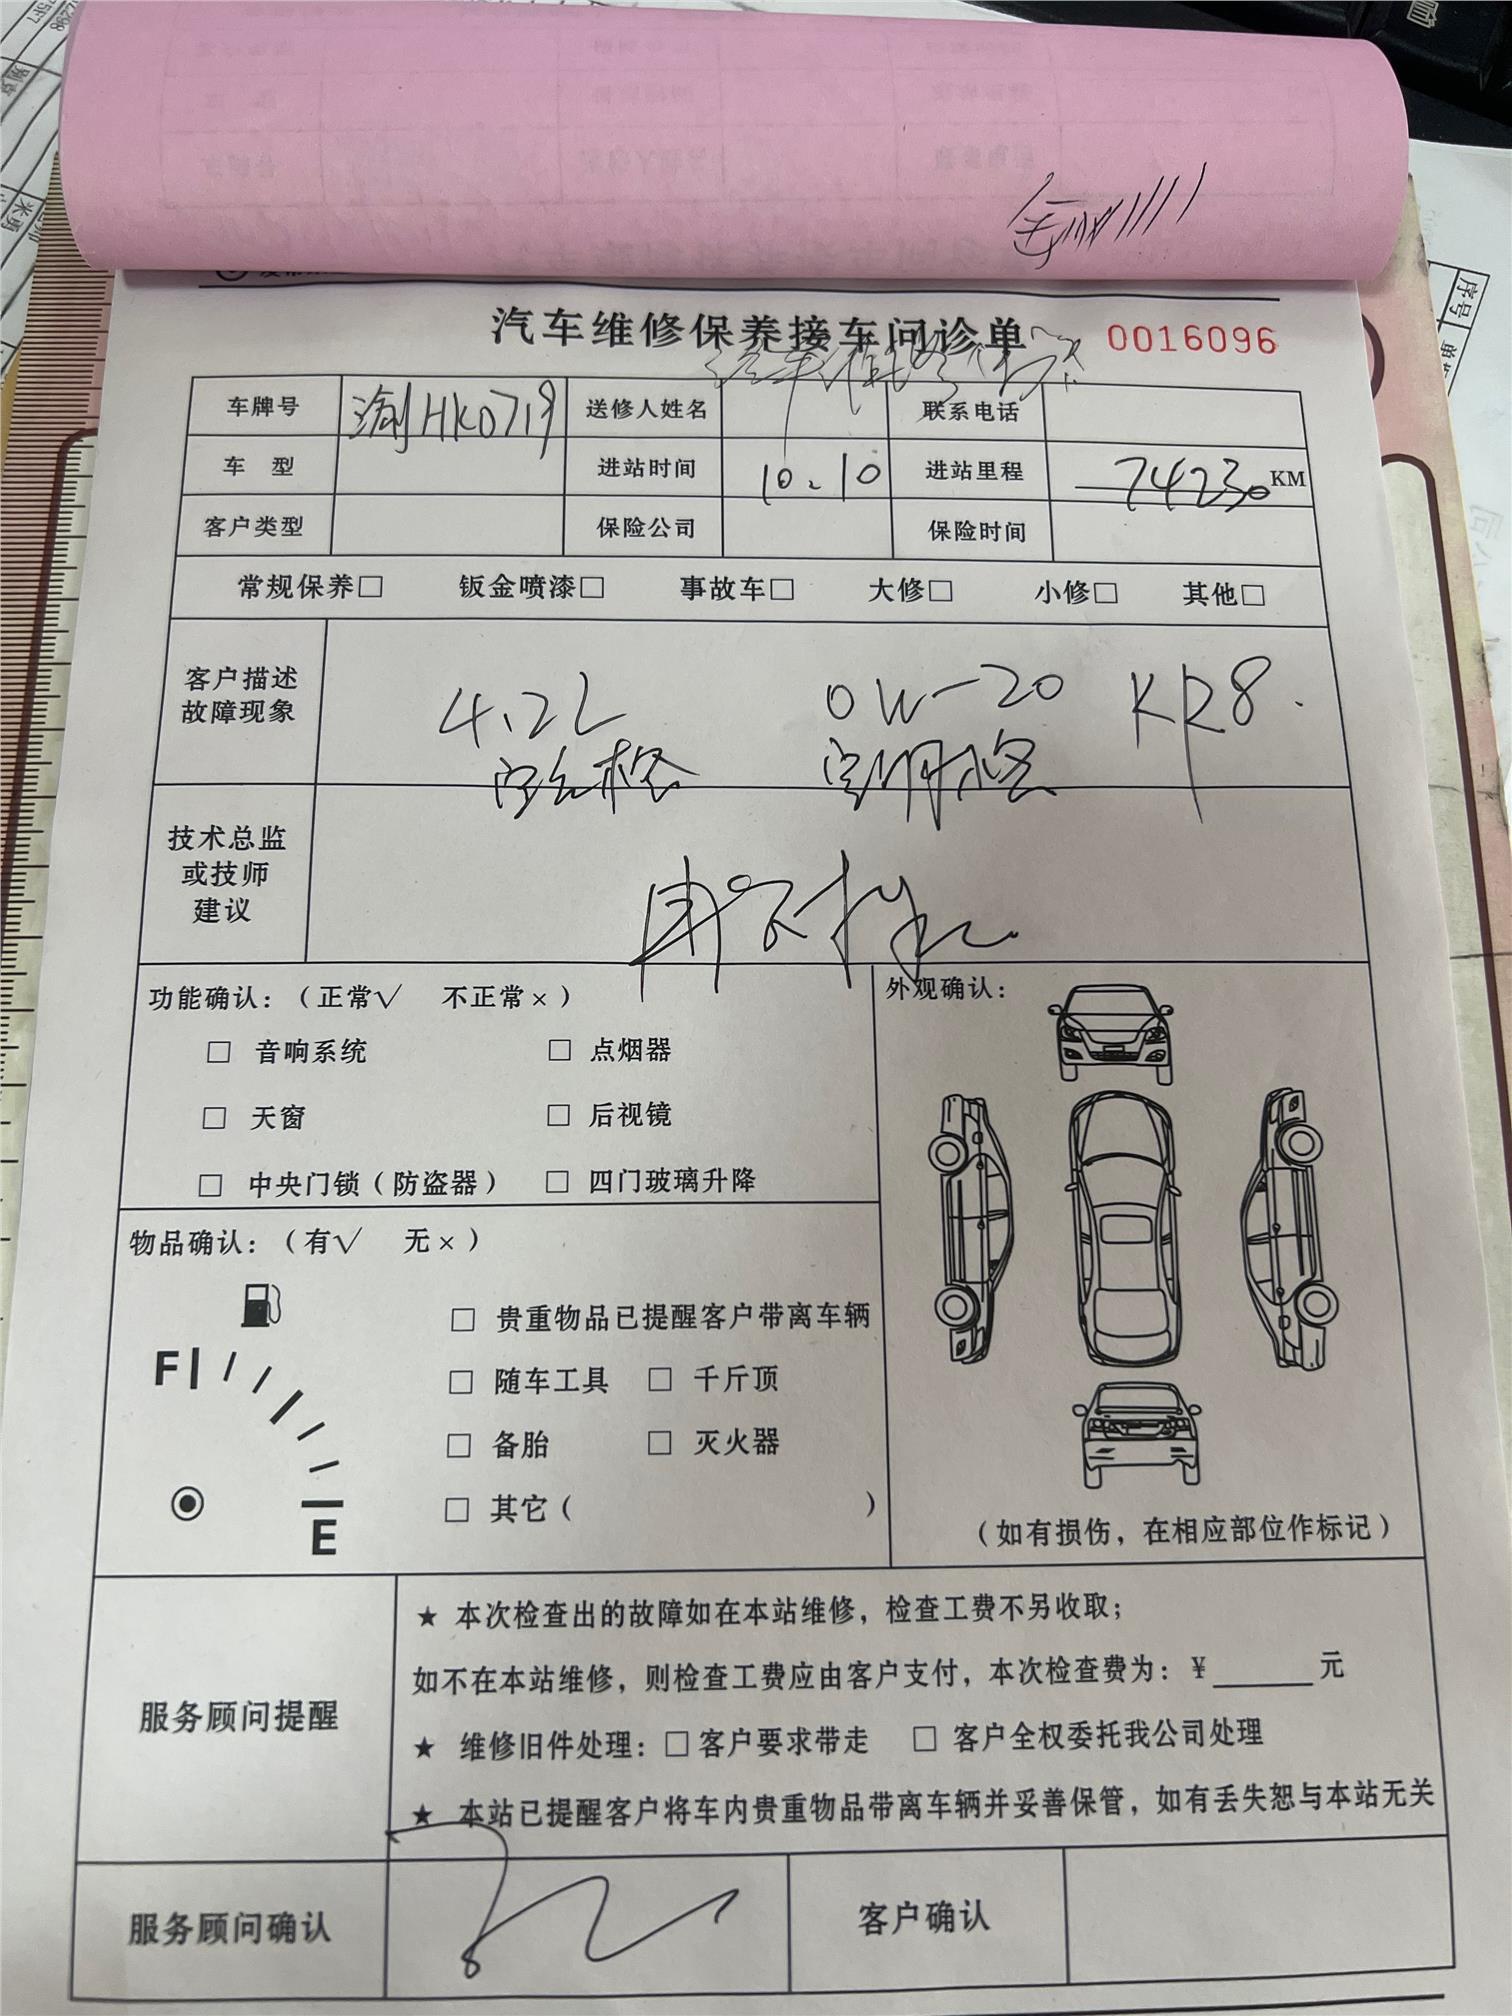 汽车维修保养接车问诊单 0016096
车牌号 渝HK0719 送修人姓名 联系电话
车 型 进站时间 10.10 进站里程 74230 KM
客户类型 保险公司 保险时间
常规保养□ 钣金喷漆□ 事故车□ 大修□ 小修□ 其他□
客户描述
故障现象
4.2L 0W-20 KR8.
技术总监
或技师
建议
功能确认：（正常√ 不正常×）
□ 音响系统 □ 点烟器
□ 天窗 □ 后视镜
□ 中央门锁（防盗器） □ 四门玻璃升降
外观确认：
（如有损伤，在相应部位作标记）
物品确认：（有√ 无×）
F
E
□ 贵重物品已提醒客户带离车辆
□ 随车工具 □ 千斤顶
□ 备胎 □ 灭火器
□ 其它（ ）
服务顾问提醒
★ 本次检查出的故障如在本站维修，检查工费不另收取；
如不在本站维修，则检查工费应由客户支付，本次检查费为：¥______元
★ 维修旧件处理：□客户要求带走 □ 客户全权委托我公司处理
★ 本站已提醒客户将车内贵重物品带离车辆并妥善保管，如有丢失恕与本站无关
服务顾问确认 客户确认